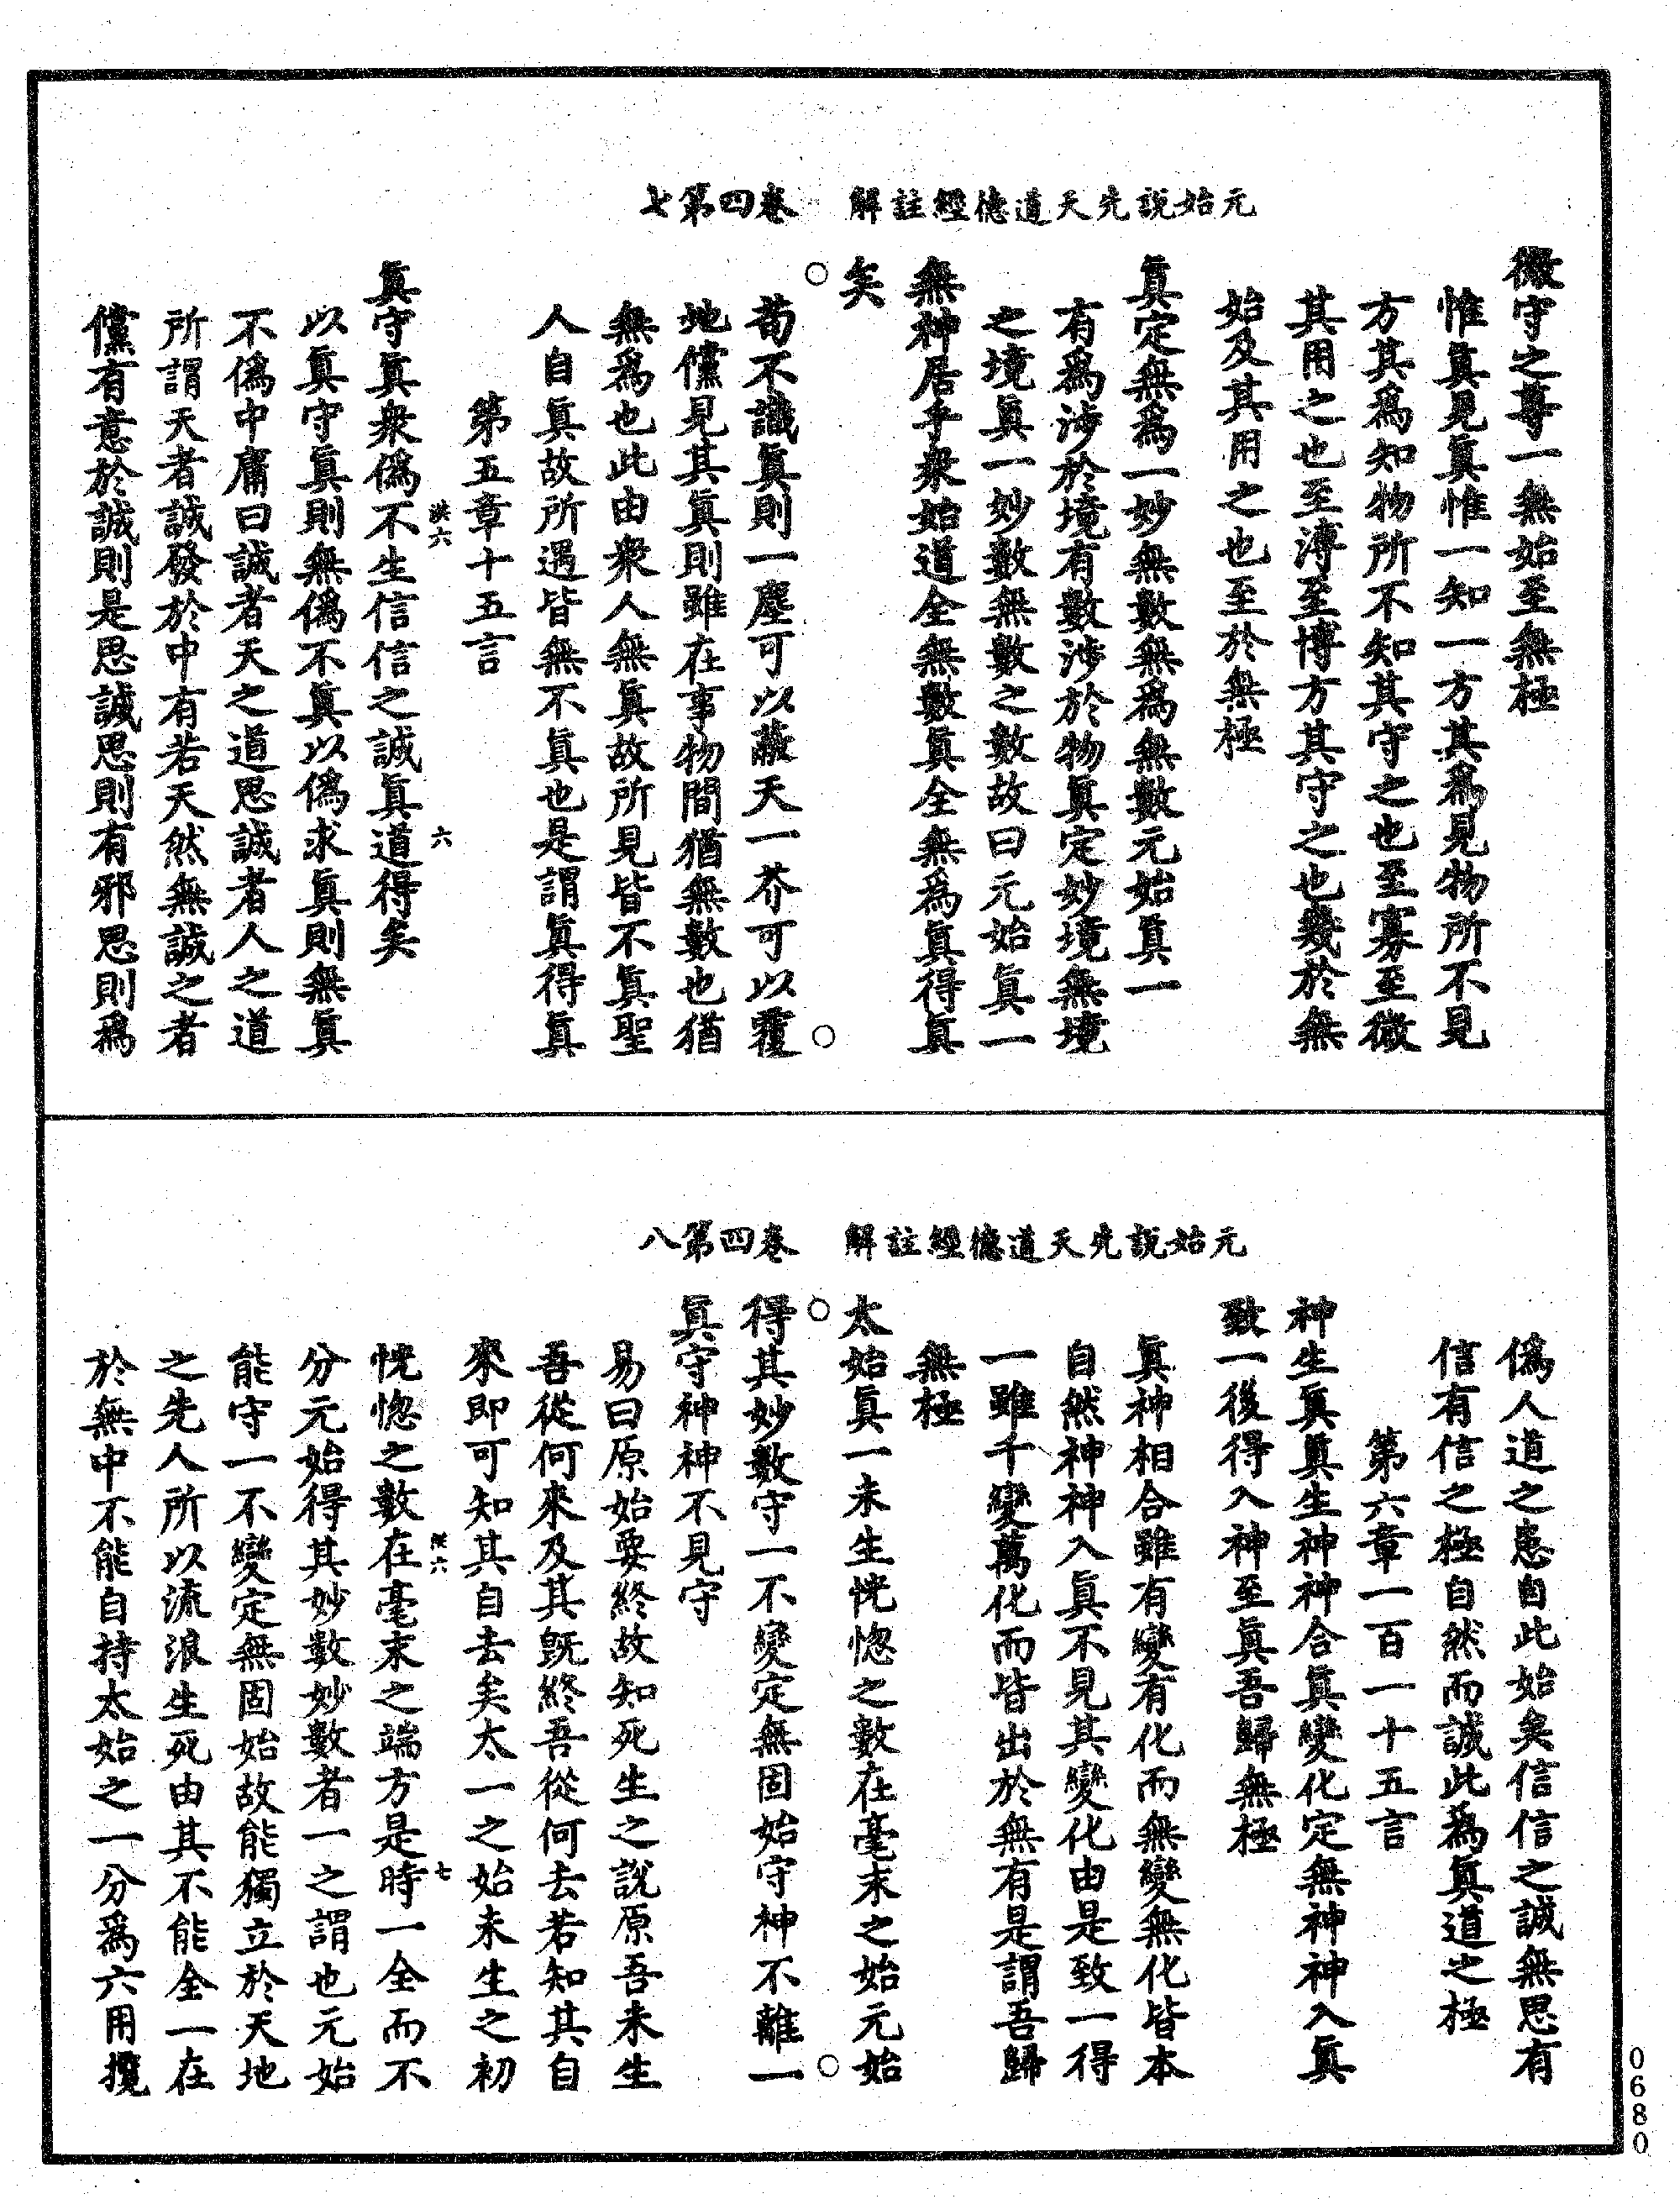 元始說先天道德經註解　卷四第七
微守之尊一無始至無極
惟眞見眞惟一知一方其爲見物所不見
方其爲知物所不知其守之也至寡至微
其用之也至溥至博方其守之也幾於無
始及其用之也至於無極
眞定無爲一妙無數無爲無數元始眞一
有爲涉於境有數涉於物眞定妙境無境
之境眞一妙數無數之數故曰元始眞一
無神居乎衆始道全無數眞全無爲眞得眞
矣
苟不識眞則一塵可以蔽天一芥可以覆
地儻見其眞則雖在事物間猶無數也猶
無爲也此由衆人無眞故所見皆不眞聖
人自眞故所遇皆無不眞也是謂眞得眞
第五章十五言
眞守眞衆僞不生信信之誠眞道得矣
以眞守眞則無僞不眞以僞求眞則無眞
不僞中庸曰誠者天之道思誠者人之道
所謂天者誠發於中有若天然無誠之者
儻有意於誠則是思誠思則有邪思則爲
元始說先天道德經註解　卷四第八
僞人道之患自此始矣信信之誠無思有
信有信之極自然而誠此爲眞道之極
第六章一百一十五言
神生眞眞生神神合眞變化定無神神入眞
致一後得入神至眞吾歸無極
眞神相合雖有變有化而無變無化皆本
自然神神入眞不見其變化由是致一得
一雖千變萬化而皆出於無有是謂吾歸
無極
太始眞一未生恍惚之數在毫末之始元始
得其妙數守一不變定無固始守神不離一
眞守神神不見守
易曰原始要終故知死生之說原吾未生
吾從何來及其旣終吾從何去若知其自
來即可知其自去矣太一之始未生之初
恍惚之數在毫末之端方是時一全而不
分元始得其妙數妙數者一之謂也元始
能守一不變定無固始故能獨立於天地
之先人所以流浪生死由其不能全一在
於無中不能自持太始之一分爲六用攬
0680